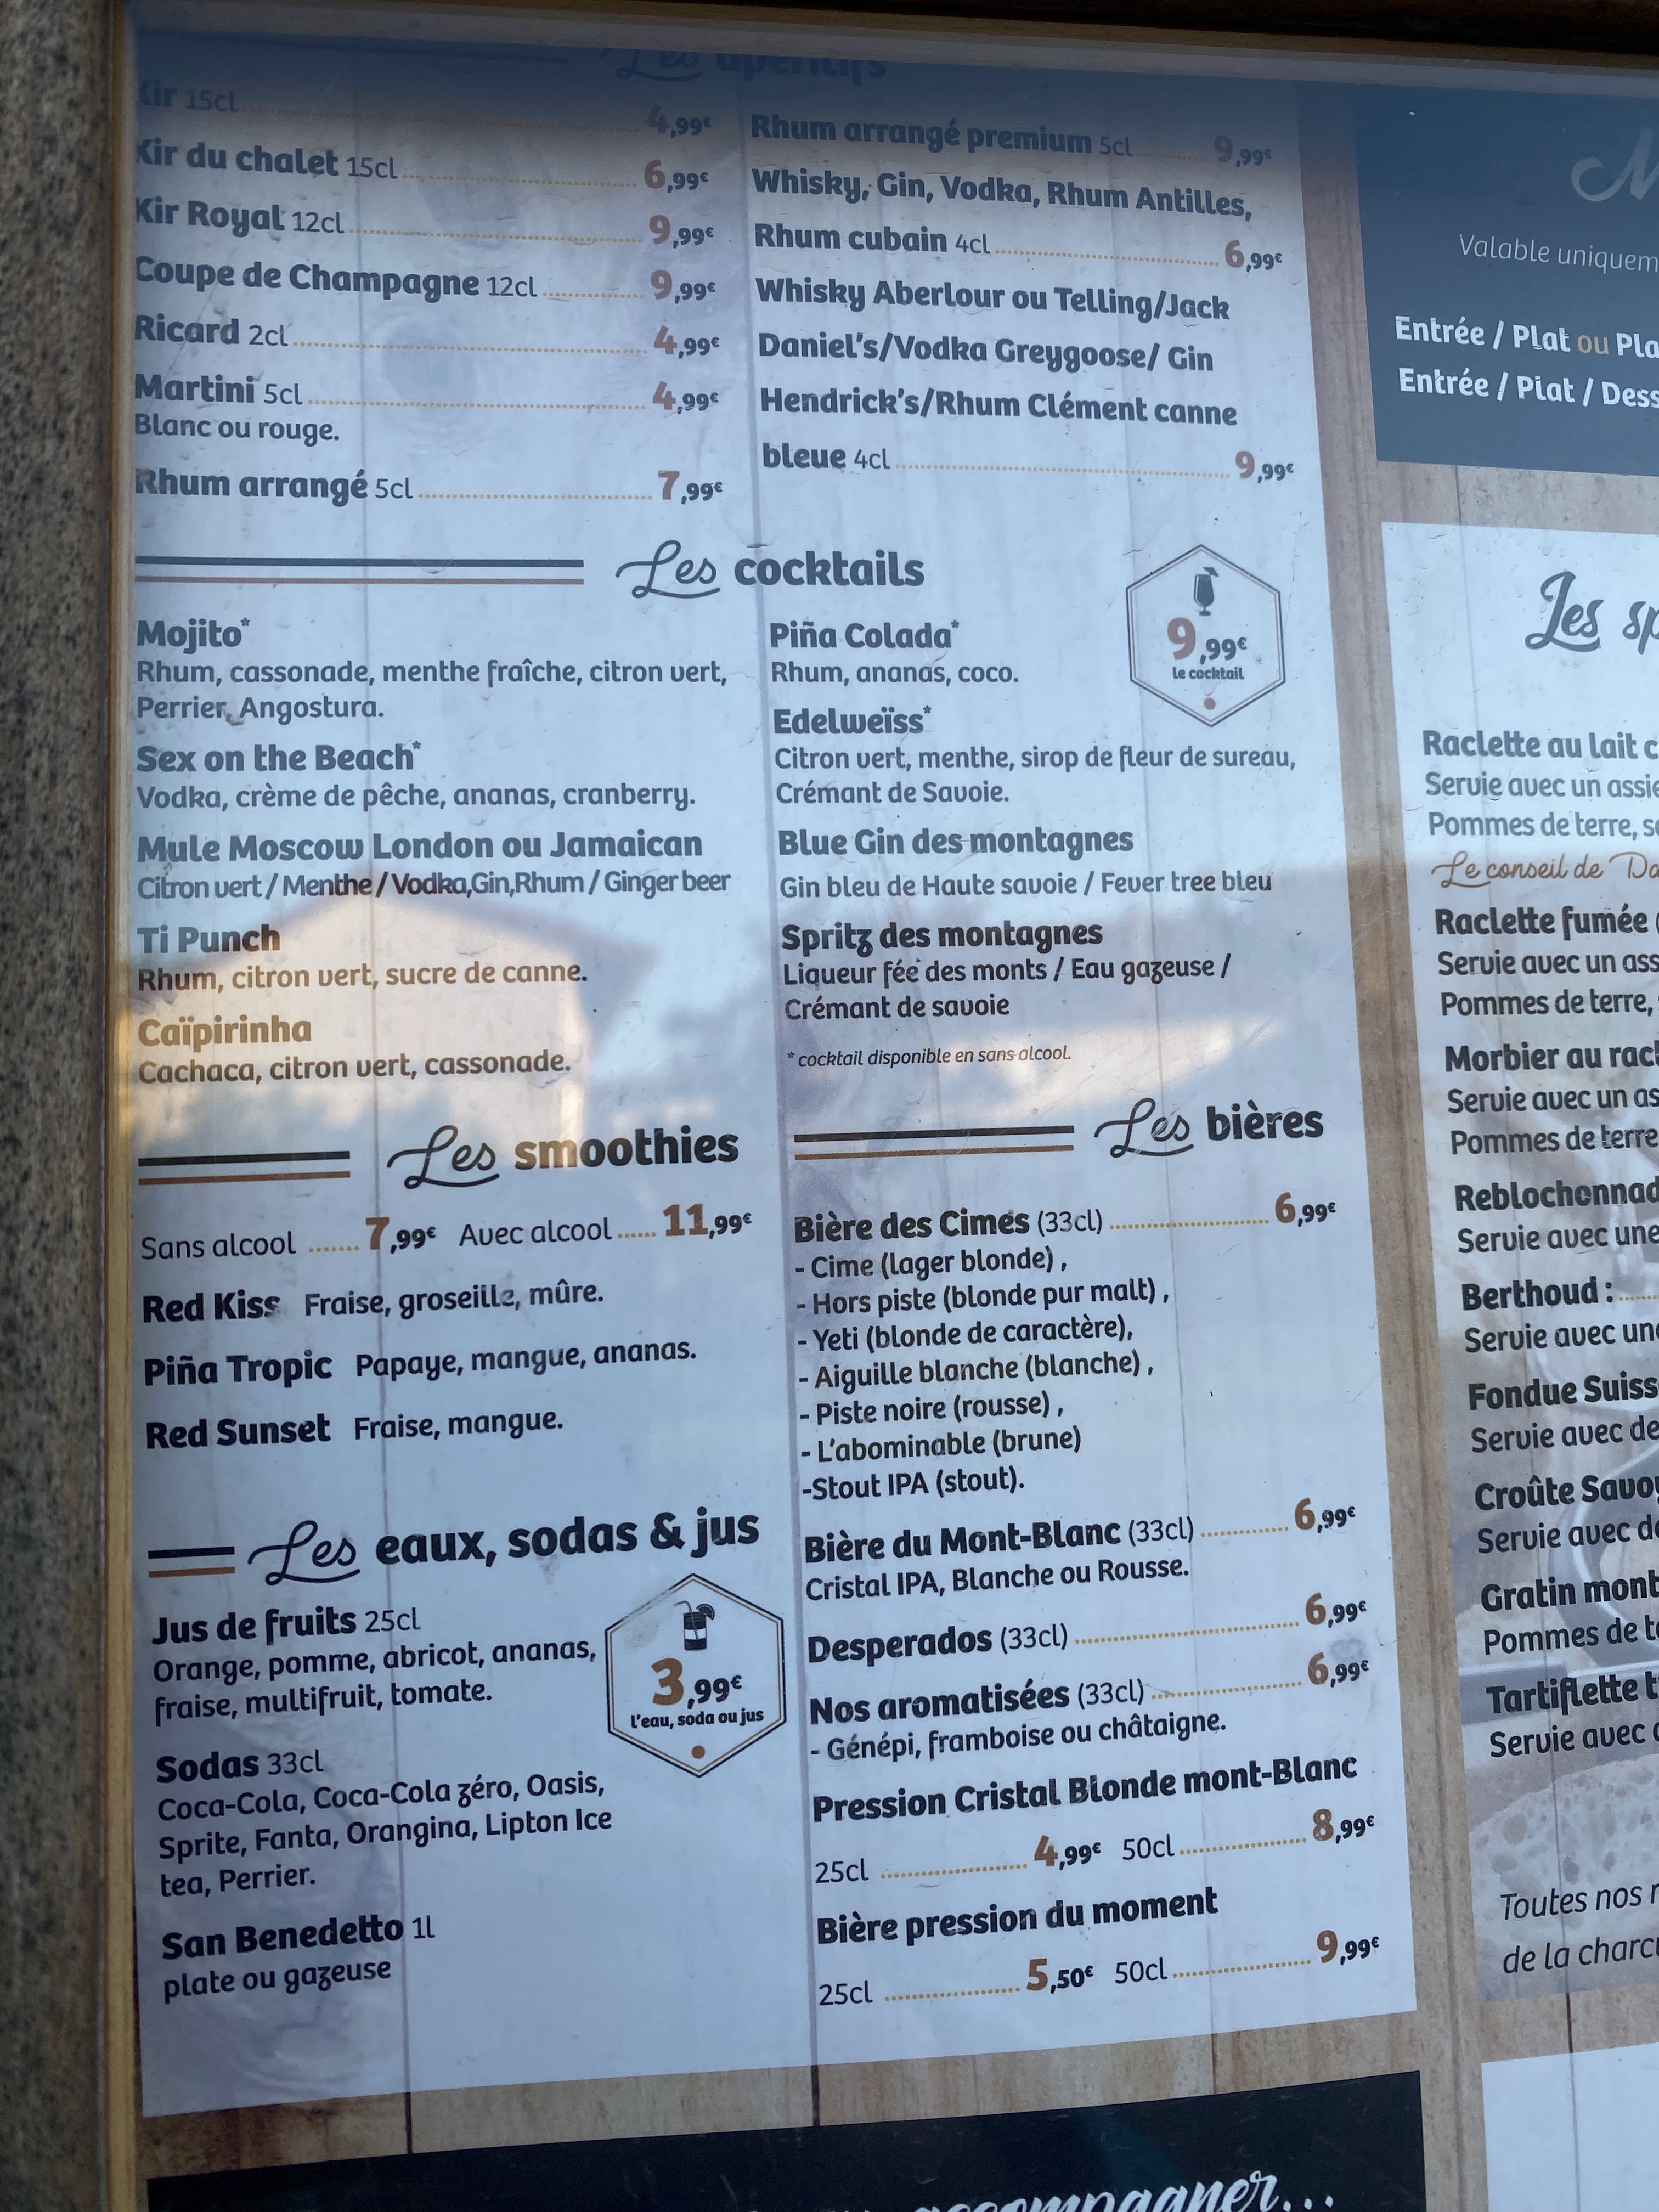 Les apéritifs
Kir 15cl 4,99€
Kir du chalet 15cl 6,99€
Kir Royal 12cl 9,99€
Coupe de Champagne 12cl 9,99€
Ricard 2cl 4,99€
Martini 5cl 4,99€
Blanc ou rouge.
Rhum arrangé 5cl 7,99€
Rhum arrangé premium 5cl 9,99€
Whisky, Gin, Vodka, Rhum Antilles,
Rhum cubain 4cl 6,99€
Whisky Aberlour ou Telling/Jack
Daniel's/Vodka Greygoose/ Gin
Hendrick's/Rhum Clément canne
bleue 4cl 9,99€
Les cocktails
9,99€
le cocktail
Mojito*
Rhum, cassonade, menthe fraîche, citron vert,
Perrier, Angostura.
Sex on the Beach*
Vodka, crème de pêche, ananas, cranberry.
Mule Moscow London ou Jamaican
Citron vert / Menthe / Vodka,Gin,Rhum / Ginger beer
Ti Punch
Rhum, citron vert, sucre de canne.
Caïpirinha
Cachaca, citron vert, cassonade.
Piña Colada*
Rhum, ananas, coco.
Edelweïss*
Citron vert, menthe, sirop de fleur de sureau,
Crémant de Savoie.
Blue Gin des montagnes
Gin bleu de Haute savoie / Fever tree bleu
Spritz des montagnes
Liqueur fée des monts / Eau gazeuse /
Crémant de savoie
* cocktail disponible en sans alcool.
Les smoothies
Sans alcool 7,99€ Avec alcool 11,99€
Red Kiss Fraise, groseille, mûre.
Piña Tropic Papaye, mangue, ananas.
Red Sunset Fraise, mangue.
Les eaux, sodas & jus
Jus de fruits 25cl
Orange, pomme, abricot, ananas,
fraise, multifruit, tomate.
3,99€
l'eau, soda ou jus
Sodas 33cl
Coca-Cola, Coca-Cola zéro, Oasis,
Sprite, Fanta, Orangina, Lipton Ice
tea, Perrier.
San Benedetto 1l
plate ou gazeuse
Les bières
Bière des Cimes (33cl) 6,99€
- Cime (lager blonde) ,
- Hors piste (blonde pur malt) ,
- Yeti (blonde de caractère),
- Aiguille blanche (blanche) ,
- Piste noire (rousse) ,
- L'abominable (brune)
-Stout IPA (stout).
Bière du Mont-Blanc (33cl) 6,99€
Cristal IPA, Blanche ou Rousse.
Desperados (33cl) 6,99€
Nos aromatisées (33cl) 6,99€
- Génépi, framboise ou châtaigne.
Pression Cristal Blonde mont-Blanc
25cl 4,99€ 50cl 8,99€
Bière pression du moment
25cl 5,50€ 50cl 9,99€
accompagner...
Valable
Entrée / Plat ou
Entrée / Plat /
Les
Raclette au lait
Servie avec un
Pommes de terre,
Le conseil de
Raclette fumée
Servie avec un
Pommes de terre,
Morbier au
Servie avec un
Pommes de terre
Servie avec une
Berthoud :
Servie avec
Fondue
Servie avec
Croûte
Servie avec
Gratin
Pommes de
Tartiflette
Servie avec
Toutes nos
de la